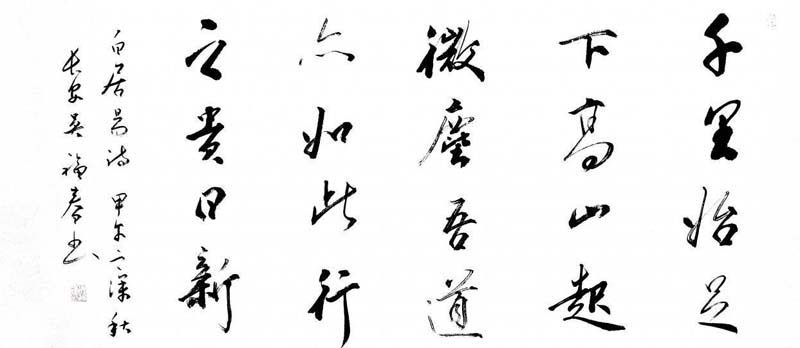 千里始足
下高山起
微塵吾道
亦如此行
之貴日新
白居易詩 甲午之深秋
长安吴福春书